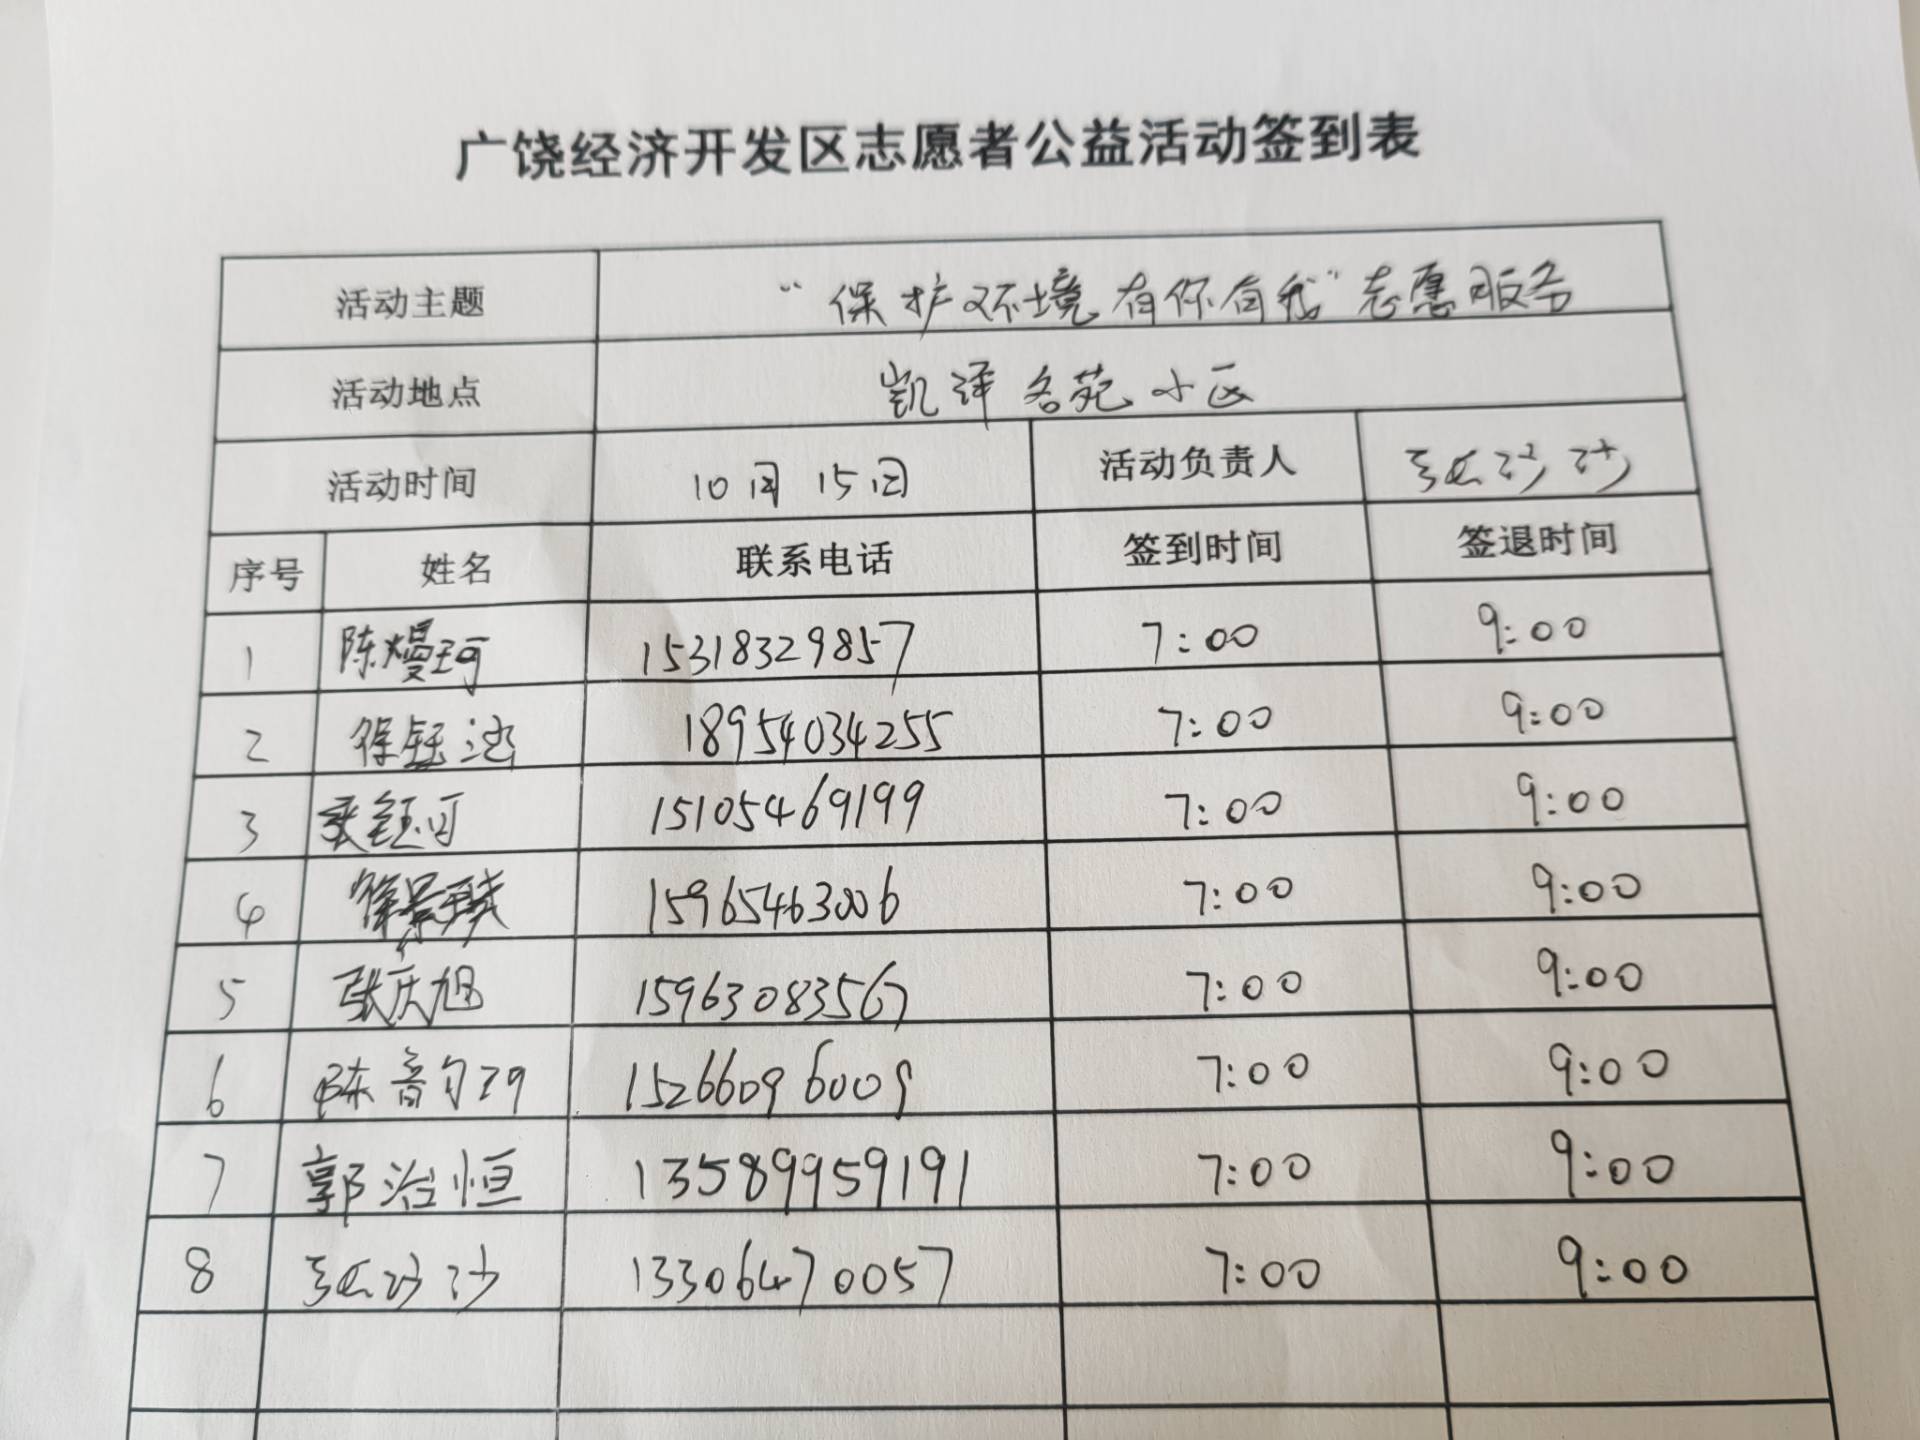 广饶经济开发区志愿者公益活动签到表
活动主题 “保护环境有你有我”志愿服务
活动地点 凯泽名苑小区
活动时间 10月15日 活动负责人 张沙沙
序号 姓名 联系电话 签到时间 签退时间
1 陈熳珂 15318329857 7:00 9:00
2 徐钰涵 18954034255 7:00 9:00
3 张钰可 15105469199 7:00 9:00
4 15965463006 7:00 9:00
5 张庆旭 15963083567 7:00 9:00
6 陈韵羽 15266096009 7:00 9:00
7 郭治恒 13589959191 7:00 9:00
8 张沙沙 13306470057 7:00 9:00